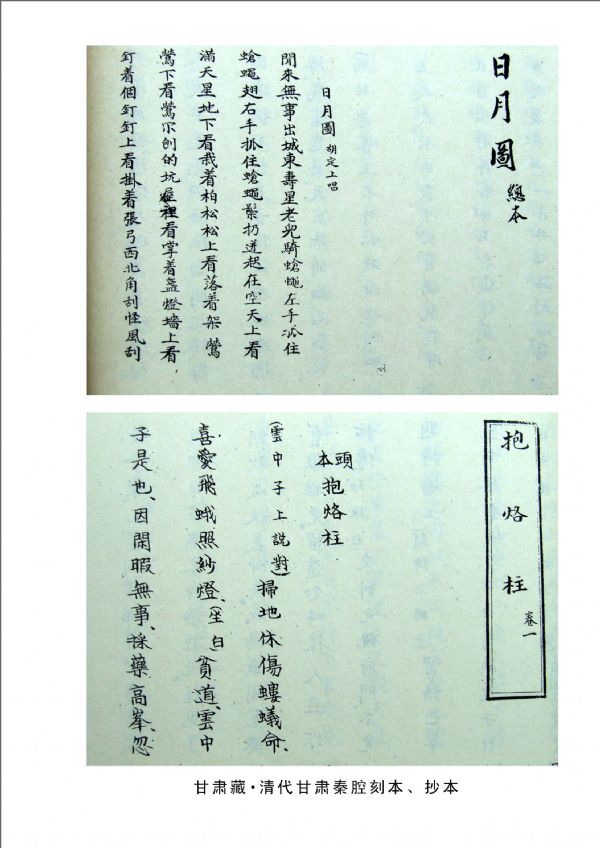 日月圖
總本
日月圖 胡定上唱
閒來無事出城東壽星老兒騎蒼蠅左手抓住
蒼蠅翅右手抓住蒼蠅鬃扔遳起在空天上看
滿天星地下看我着柏松松上看落着架鶯
鶯下看鶯尔刨的坑屋裡看掌着盞燈墻上看
釘着個釘釘上看掛着張弓西北角刮怪風刮
抱烙柱
卷一
頭本抱烙柱
(雲中子上說對)掃地休傷螻蟻命、
喜愛飛蛾照紗燈、(坐白)貧道、雲中
子是也、因閑暇無事、採藥高峯、忽
甘肃藏·清代甘肃秦腔刻本、抄本